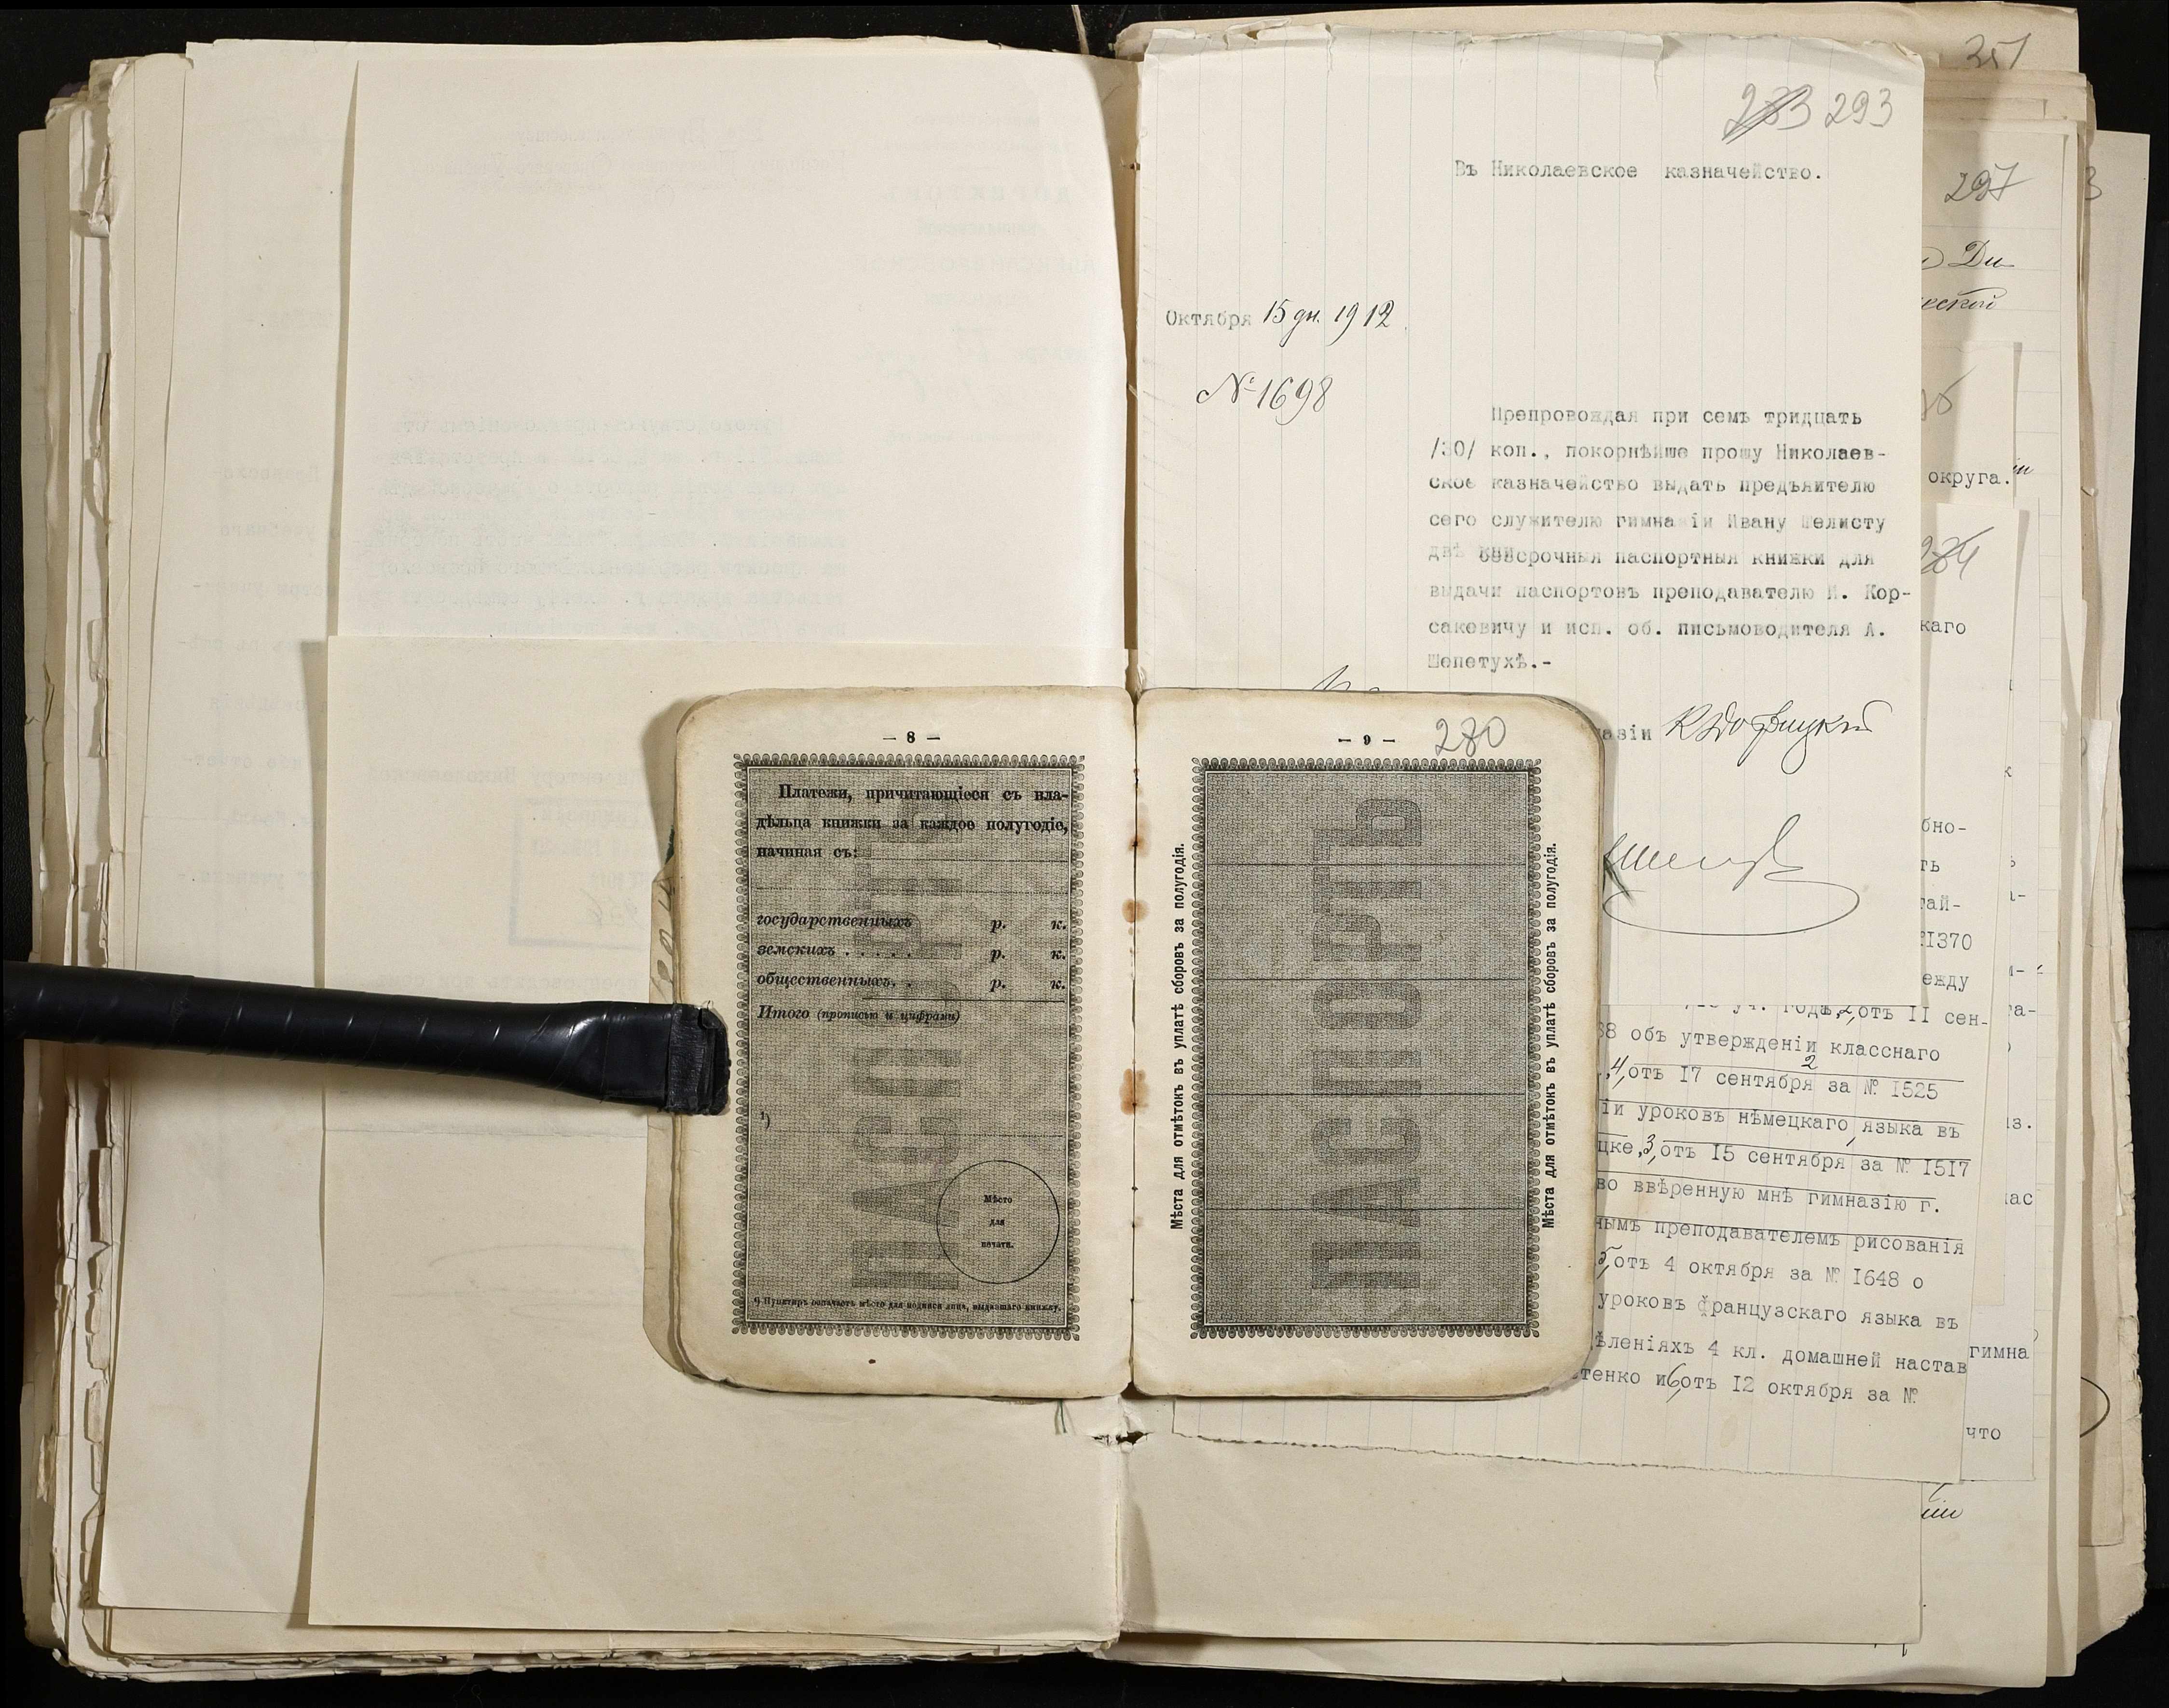 351
283 293
Въ Николаевское казначейство.
297
Октября 15 дн. 1912
№ 1698
Препровождая при семъ тридцать
/30/ коп., покорнѣйше прошу Николаев-
ское казначейство выдать предъявителю
сего служителю гимназіи Ивану Шелисту
двѣ безсрочныя паспортныя книжки для
выдачи паспортовъ преподавателю И. Кор-
саковичу и исп. об. письмоводителя А.
Шепетухѣ.-
азіи
округа.
284
каго
— 8 —
Платежи, причитающіеся съ вла-
дѣльца книжки за каждое полугодіе,
начиная съ:
государственныхъ р. к.
земскихъ . . . . . р. к.
общественныхъ. . р. к.
Итого (прописью и цифрами)
¹)
Мѣсто
для
печати.
¹) Пунктиръ означаетъ мѣсто для подписи лица, выдавшаго книжку.
ПАСПОРТЪ
— 9 — 280
Мѣста для отмѣтокъ въ уплатѣ сборовъ за полугодія.
ПАСПОРТЪ
Мѣста для отмѣтокъ въ уплатѣ сборовъ за полугодія.
бно-
ть
тай-
1370
ежду
уч. года, 2, отъ II сен-
38 объ утвержденіи класснаго
4, отъ 17 сентября за № 1525
іи уроковъ нѣмецкаго языка въ
цке, 3, отъ 15 сентября за № 1517
во ввѣренную мнѣ гимназію г.
нымъ преподавателемъ рисованія
5, отъ 4 октября за № 1648 о
уроковъ французскаго языка въ
ѣленіяхъ 4 кл. домашней настав
тенко и 6, отъ 12 октября за №
гимна
что